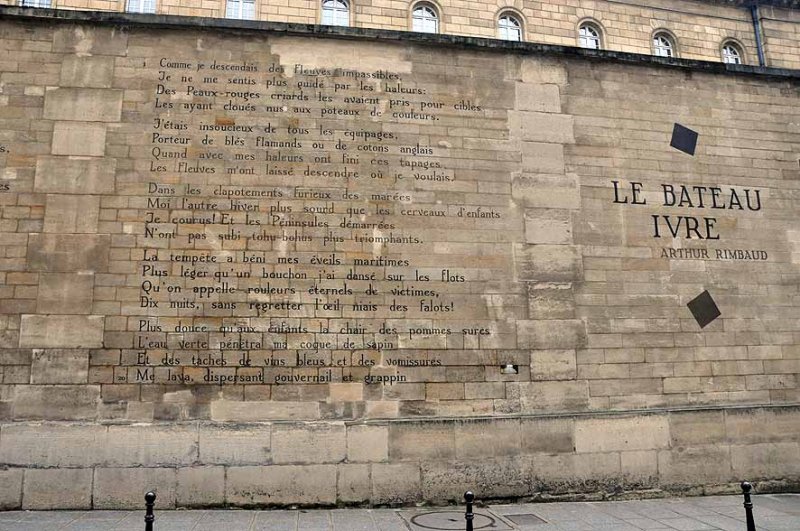 1 Comme je descendais des Fleuves impassibles,
Je ne me sentis plus guidé par les haleurs:
Des Peaux-rouges criards les avaient pris pour cibles,
Les ayant cloués nus aux poteaux de couleurs.
J'étais insoucieux de tous les équipages,
Porteur de blés flamands ou de cotons anglais
Quand avec mes haleurs ont fini ces tapages
Les Fleuves m'ont laissé descendre où je voulais.
Dans les clapotements furieux des marées
Moi l'autre hiver plus sourd que les cerveaux d'enfants
Je courus! Et les Péninsules démarrées
N'ont pas subi tohu-bohus plus triomphants.
La tempête a béni mes éveils maritimes
Plus léger qu'un bouchon j'ai dansé sur les flots
Qu'on appelle rouleurs éternels de victimes,
Dix nuits, sans regretter l'œil niais des falots!
Plus douce qu'aux enfants la chair des pommes sures
L'eau verte pénétra ma coque de sapin
Et des taches de vins bleus et des vomissures
20 Me lava, dispersant gouvernail et grappin
LE BATEAU
IVRE
ARTHUR RIMBAUD